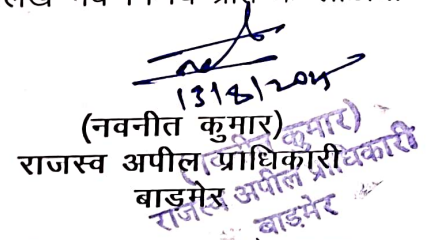 13/8/2025
(नवनीत कुमार)
राजस्व अपील प्राधिकारी
बाड़मेर
(नवनीत कुमार)
राजस्व अपील प्राधिकारी
बाड़मेर